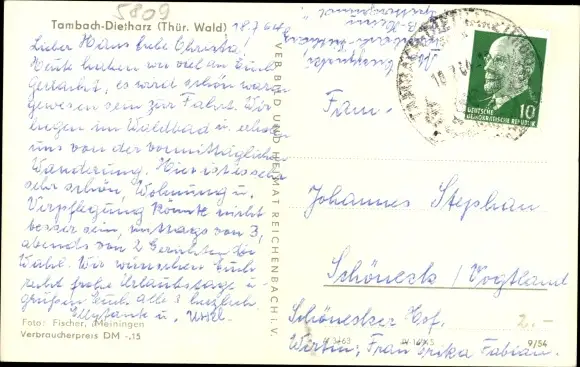 5809
Tambach-Dietharz (Thür. Wald) 18.7.64
Lieber Hans liebe Christa!
Heute haben wir viel an Euch
gedacht, es wird schön warm
gewesen sein zur Fahrt. Wir
liegen im Waldbad u. erholen
uns von der vormittäglichen
Wanderung. Hier ist es sehr
sehr schön, Wohnung u.
Verpflegung könnte nicht
besser sein, mittags von 3,
abends von 2 Gerichten die
Wahl. Wir wünschen Euch
recht frohe Urlaubstage u.
grüßen Euch alle herzlich
u.
Foto: Fischer, Meiningen
Verbraucherpreis DM -,15
VER BILD UND HEIMAT REICHENBACH i. V.
10
DEUTSCHE
DEMOKRATISCHE REPUBLIK
Fam.
Johannes Stephan
Schöneck / Vogtland
Schönecker Hof.
Wirtin: Frau Erika Fabian.
9/54